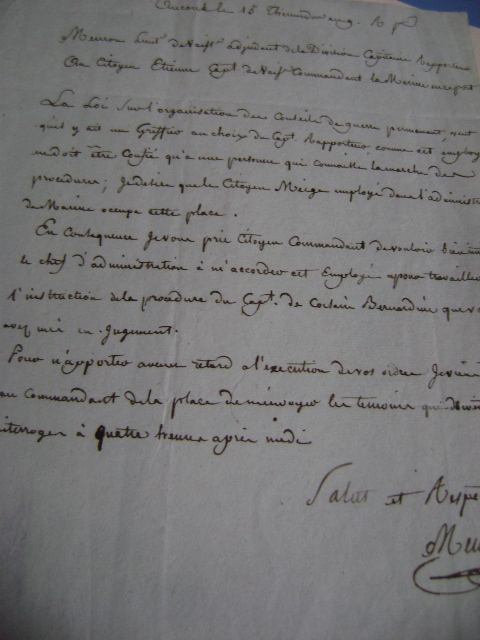 le 15 Thermidor
Lieut. de Vaiss. adjudant de la Division Capitaine Rapporteur
Au Citoyen Etienne Capt. de Vaiss. Commandant la Marine
La Loi sur l'organisation des Conseils de guerre permanent, veut
qu'il y ait un Greffier au choix du Capt. Rapporteur, comme cet employ
ne doit être Confié qu'a une personne qui connaisse la marche des
procedures; Je desire que le Citoyen Meige employé dans l'administ
de Marine occupe cette place.
En Consequence Je vous prie Citoyen Commandant de vouloir bien
le chef d'administration à m'accorder cet Employé pour travailler
l'instruction de la procedure du Capt. de Corsaire Bernardin que
avez mis en Jugement.
Pour n'apporter aucun retard a l'execution de vos ordres Je
au Commandant de la place de m'envoyer les temoins que
interroger à quatre heures après midi
Salut et Respe